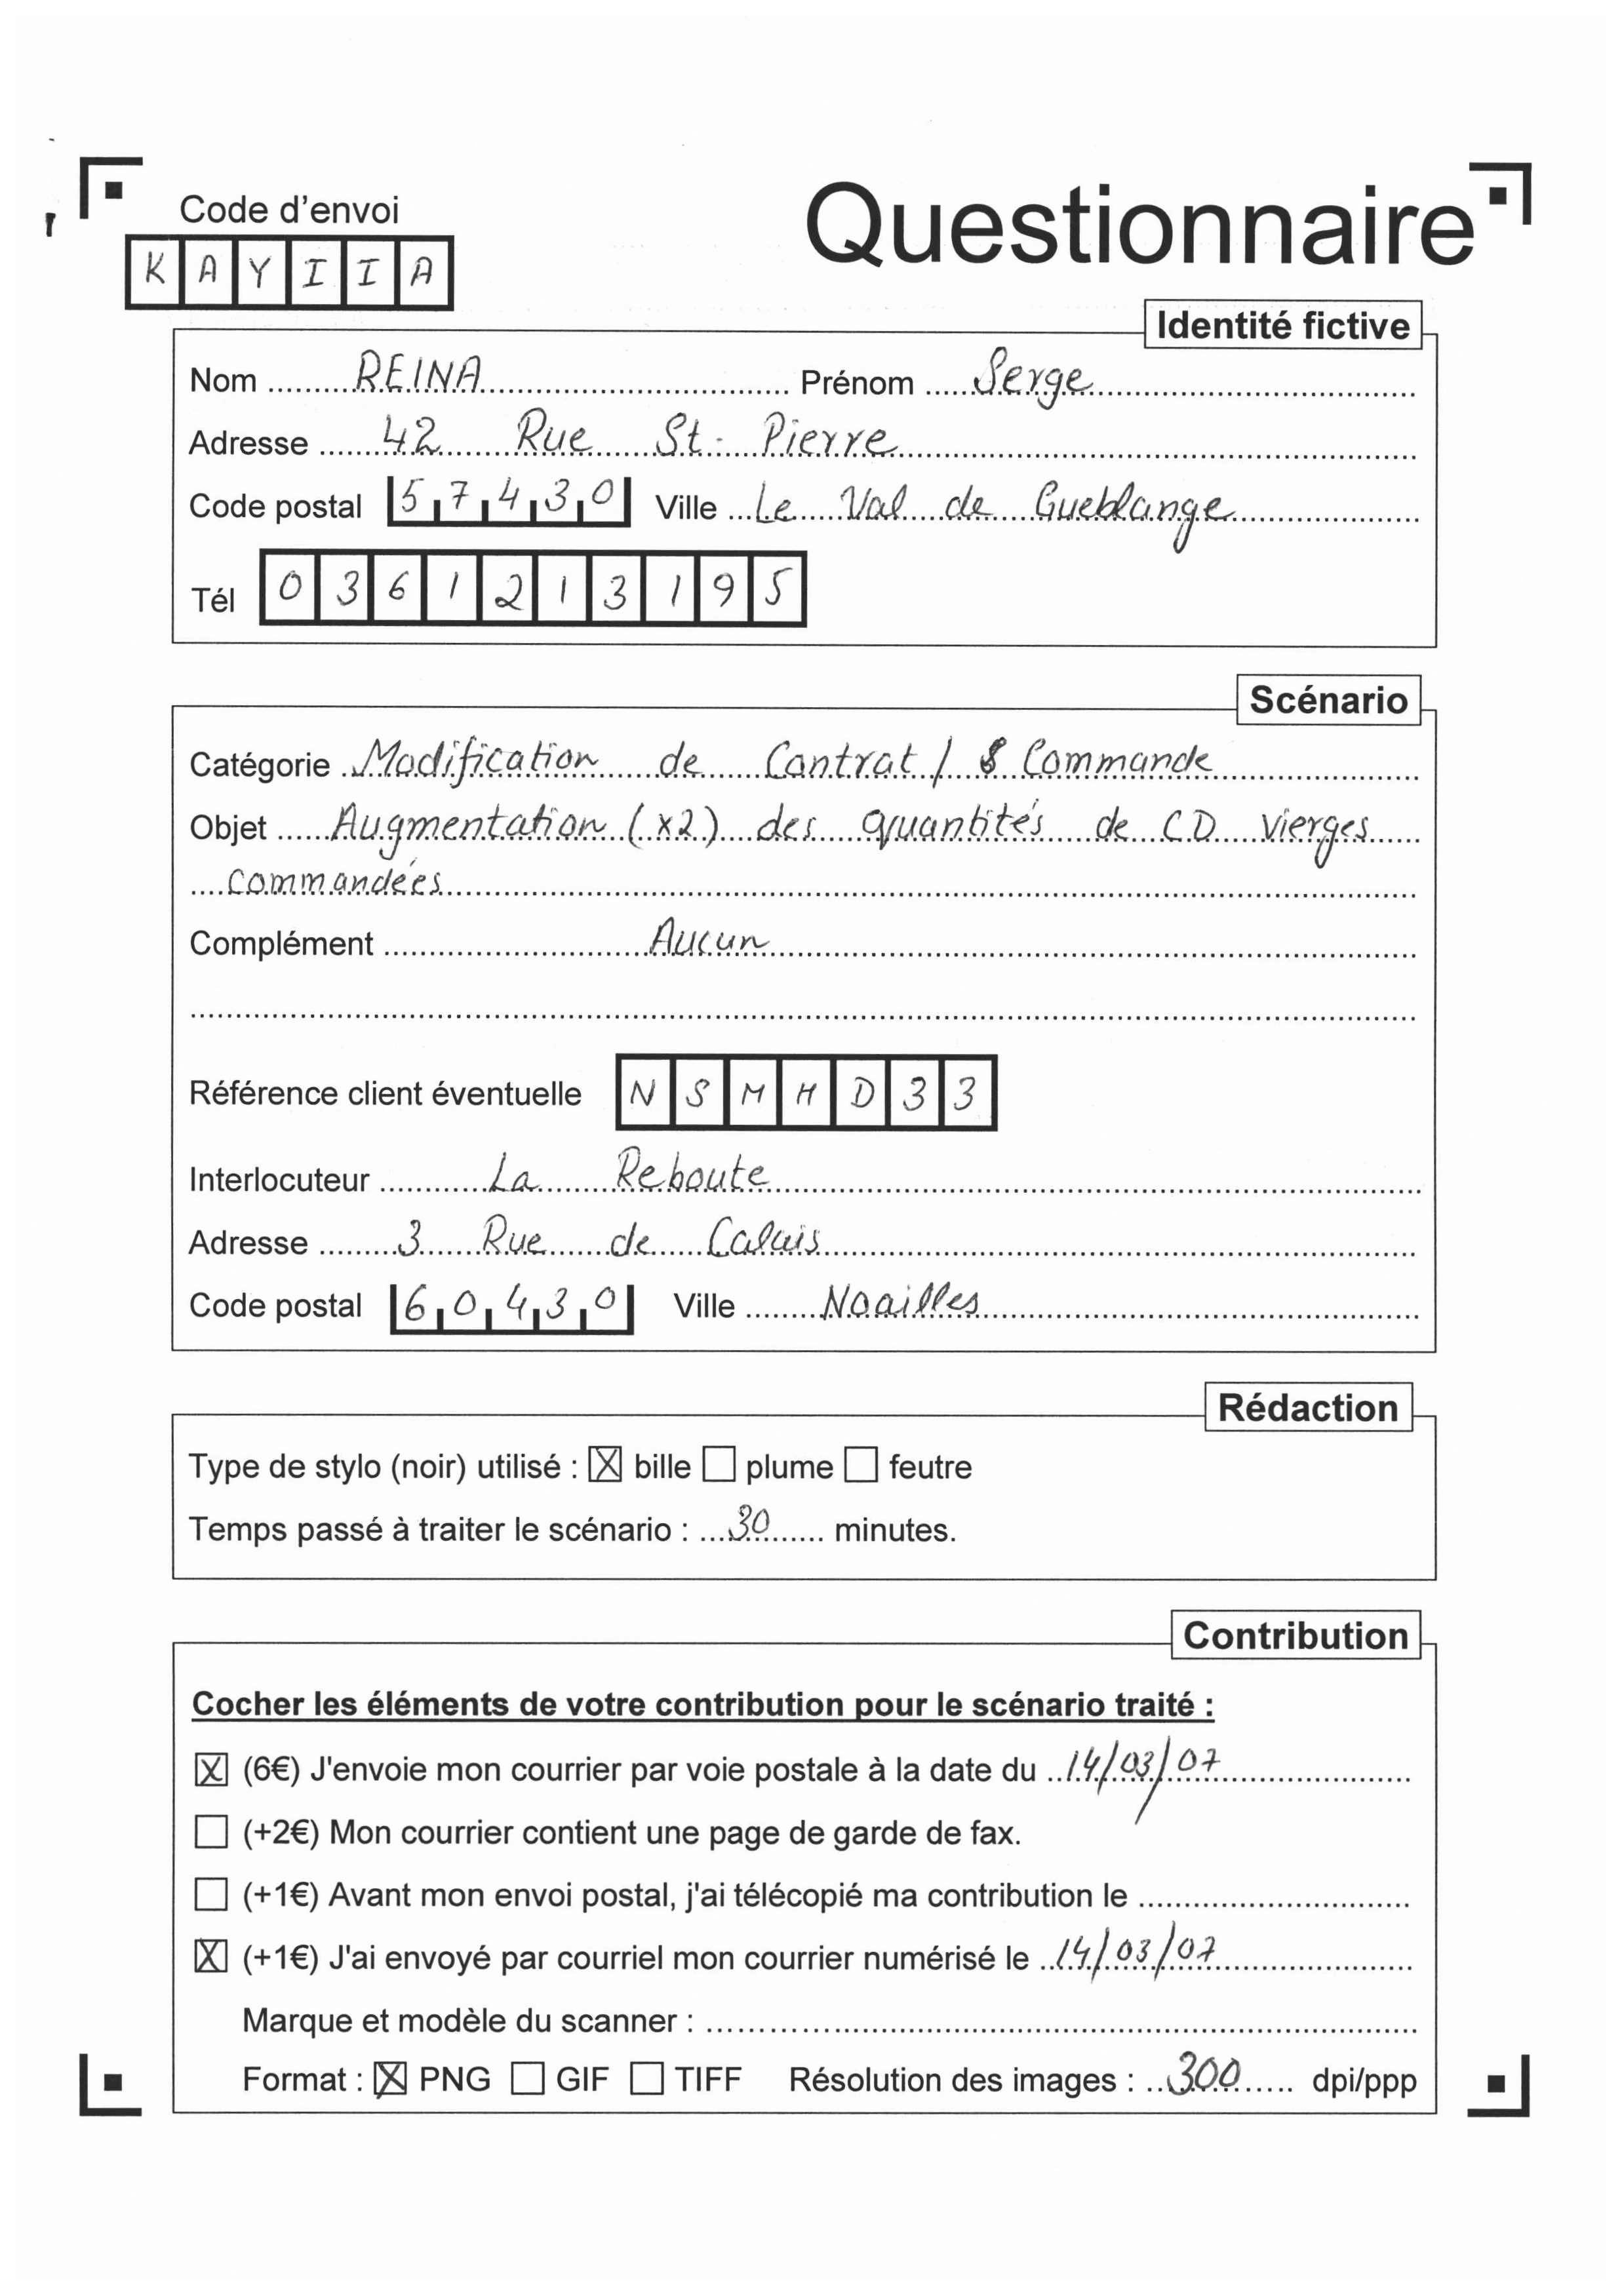 Code d'envoi
Questionnaire
K A Y I I A
Identité fictive
Nom REINA Prénom Serge
Adresse 42 Rue St. Pierre
Code postal 57430 Ville Le Val de Gueblange
Tél 0361213195
Scénario
Catégorie Modification de Contrat / Commande
Objet Augmentation (x2) des quantités de CD vierges
commandées
Complément Aucun
Référence client éventuelle N S M H D 3 3
Interlocuteur La Reboute
Adresse 3 Rue de Calais
Code postal 60430 Ville Noailles
Rédaction
Type de stylo (noir) utilisé : ☒ bille ☐ plume ☐ feutre
Temps passé à traiter le scénario : 30 minutes.
Contribution
Cocher les éléments de votre contribution pour le scénario traité :
☒ (6€) J'envoie mon courrier par voie postale à la date du 14/03/07
☐ (+2€) Mon courrier contient une page de garde de fax.
☐ (+1€) Avant mon envoi postal, j'ai télécopié ma contribution le
☒ (+1€) J'ai envoyé par courriel mon courrier numérisé le 14/03/07
Marque et modèle du scanner :
Format : ☒ PNG ☐ GIF ☐ TIFF Résolution des images : 300 dpi/ppp